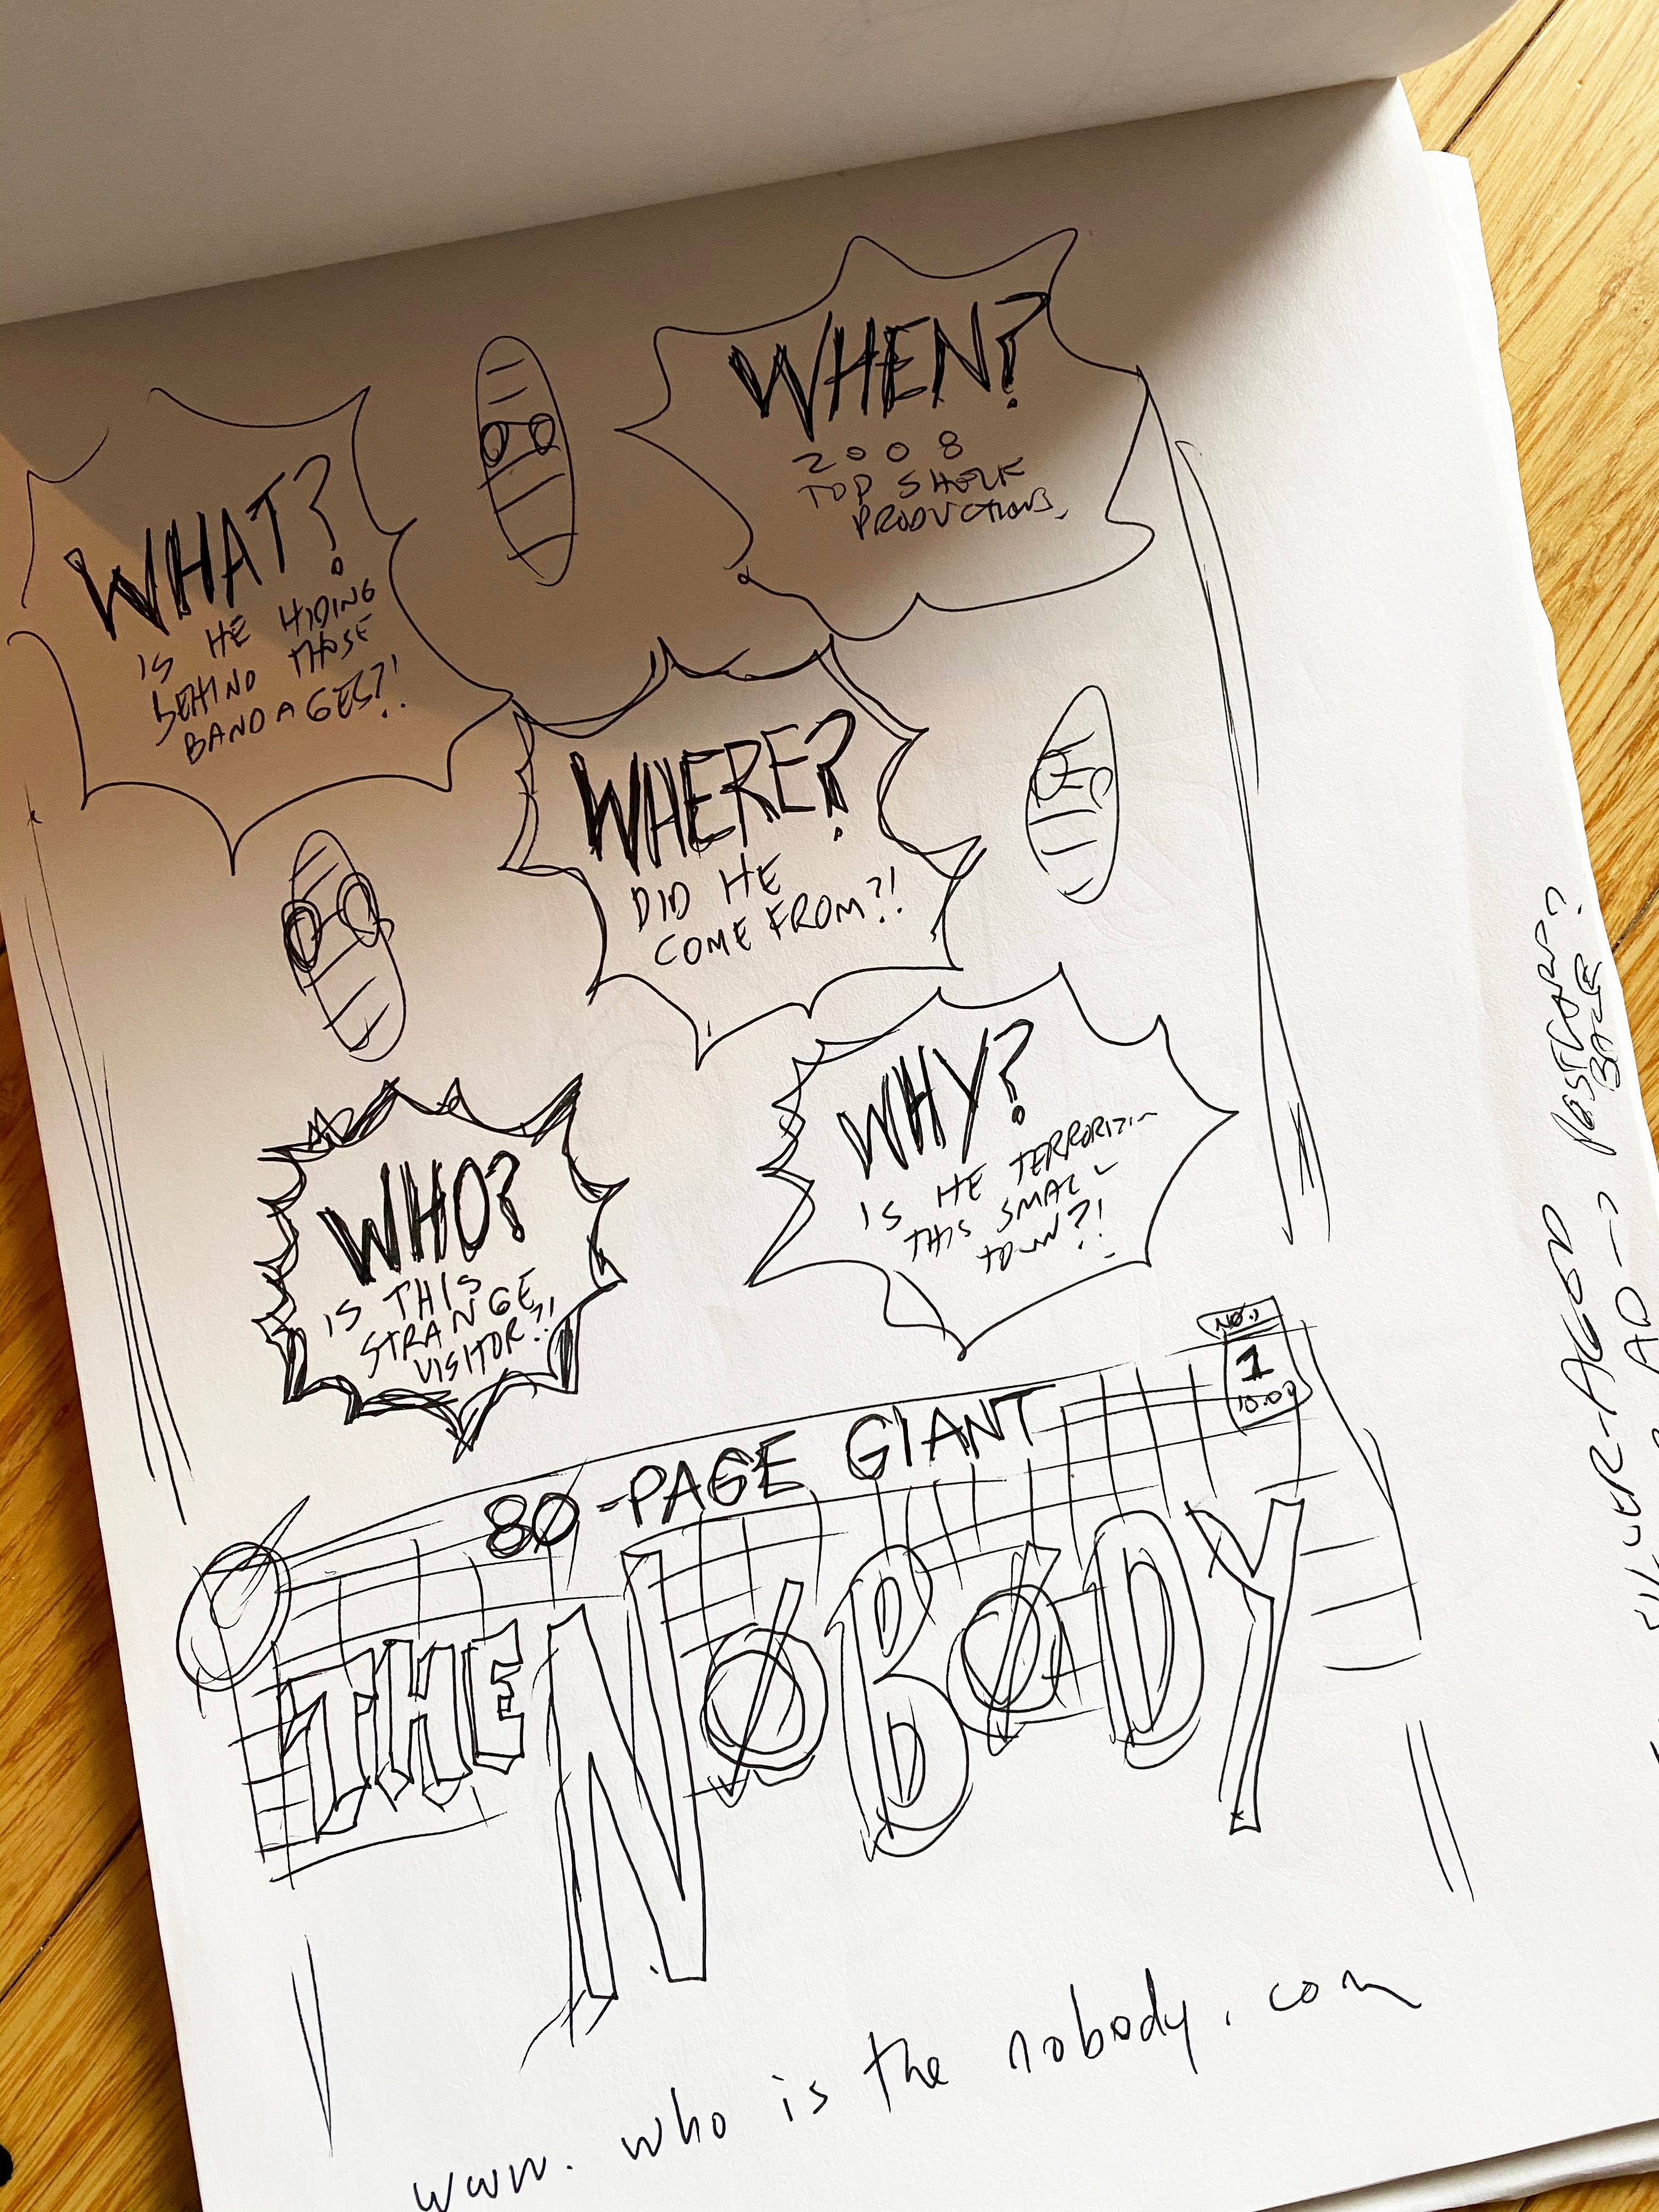 WHEN?
2008
TOP SHELF
PRODUCTIONS.
WHAT?
IS HE HIDING
BEHIND THOSE
BANDAGES?!
WHERE?
DID HE
COME FROM?!
WHO?
IS THIS
STRANGE
VISITOR?!
WHY?
IS HE
THIS SMALL
TOWN?!
NO.
1
80-PAGE GIANT
THE NOBODY
www.who is the nobody.com
SILVER-AGED
AD → POSTCARD?
BACK